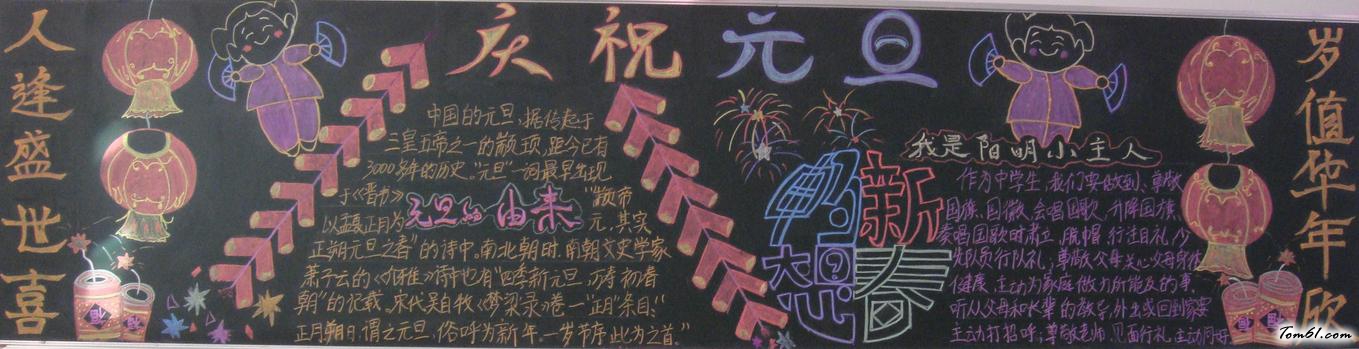 人逢盛世喜
庆祝元旦
中国的元旦,据传起于
三皇五帝之一的颛顼,距今已有
3000多年的历史。"元旦"一词最早出现
于《晋书》
"颛帝
以孟夏正月为
元,其实
元旦的由来
正朔元旦之春"的诗中,南北朝时,南朝文史学家
萧子云的《介雅》诗中也有"四季新元旦,万寿初春
朝"的记载。宋代吴自牧《梦粱录》卷一"正月"条目:"
正月朔日,谓之元旦,俗呼为新年。一岁节序,此为之首。"
畅想
新春
我是阳明小主人
作为中学生,我们要做到、尊敬
国旗、国徽,会唱国歌,升降国旗、
奏唱国歌时肃立、脱帽、行注目礼,少
先队员行队礼;尊敬父母关心父母身体
健康,主动为家庭做力所能及的事,
听从父母和长辈的教导,外出或回到家要
主动打招呼,尊敬老师,见面行礼,主动问好
岁值华年欣
Tom61.com